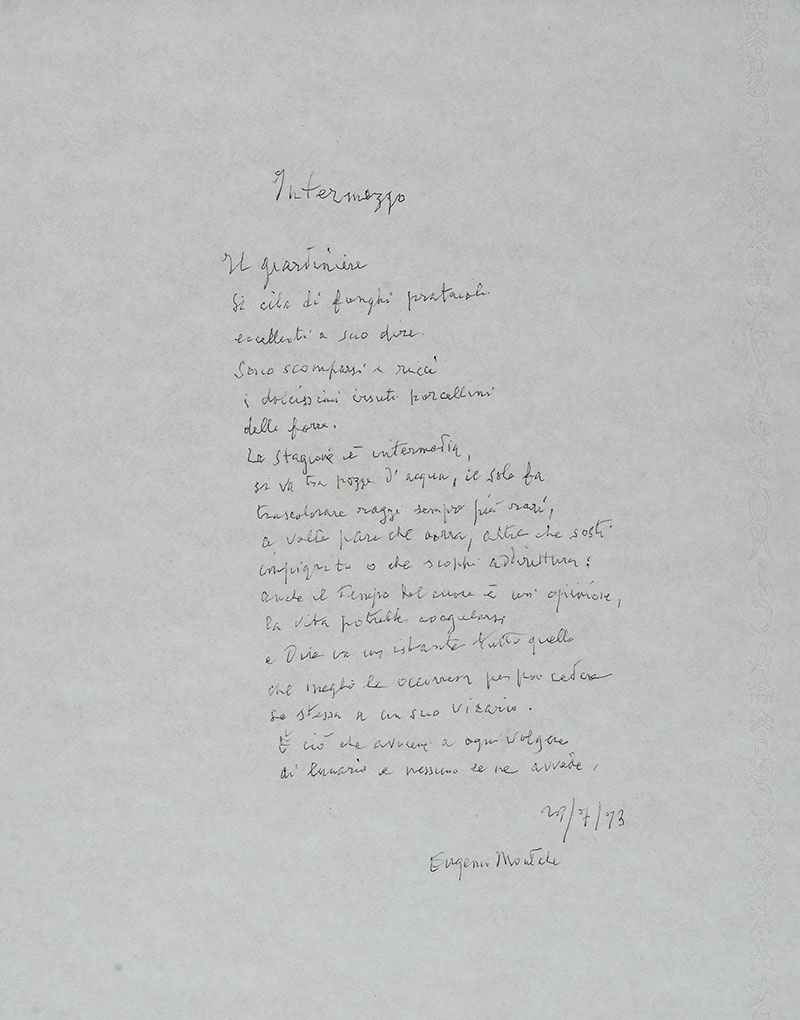 Intermezzo
Il giardiniere
si ciba di funghi prataioli
eccellenti a suo dire.
Sono scomparsi i ricci
i dolcissimi irsuti porcellini
delle forre.
La stagione è intermedia,
si va tra pozze d'acqua, il sole fa
trascolorare raggi sempre più rari,
a volte pare che corra, altre che sosti
impigrito o che scoppi addirittura:
anche il tempo del cuore è un' opinione,
la vita potrebbe coagularsi
e dire in un istante tutto quello
che meglio le occorreva per poi cedere
se stessa a un suo vicario.
È ciò che avviene a ogni volgere
di lunario e nessuno se ne avvede.
29/7/73
Eugenio Montale